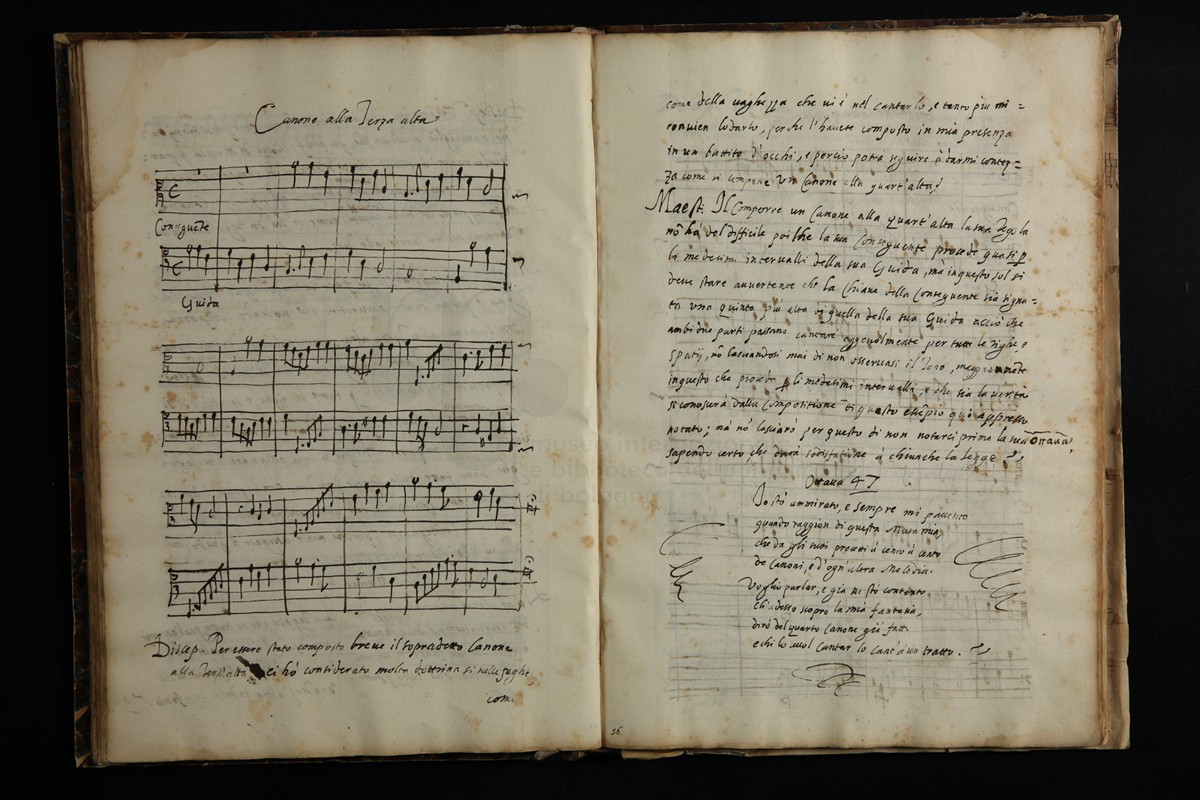 Canone alla Terza alta
Conseguẽte
Guida
Discep. Per essere stato composto breve il sopradetto Canone
alla Terz'alta ci hò considerato molta dottrina sì nelle fughe,
com.
come della vaghezza che vi è nel cantarlo, e tanto più mi =
convien lodarlo, perche l'havete composto in mia presenza
in un battito d'occhi, e perciò potrà seguire à darmi conteẓ=
za come si compone un Canone alla quart'alta?
Maest: Il Comporre un Canone alla quart'alta la sua regola
nõ há del difficile poi che la sua Conseguente procede quasi ꝑ
li medesimi intervalli della sua Guida, mà in questo sol si
deve stare avvertente che la Chiave della Conseguente sia signa=
ta una quinta più alta di quella della sua Guida acciò che
ambidue parti possano cantare aggevolmente per tutte le righe, e
spatij, nõ lasciandosi mai di non osservasi il Tono, maggiormẽte
in questo che procede ꝑ li medesimi intervalli, e che sia la verità
si conoscerà dalla Compositione di questo esẽpio qui appresso
notato; mà nõ lasciarò per questo di non notarci prima la sua Ottava,
sapendo certo, che darà sodisfatione à chiunche la legge.
Ottava 47
Io stò ammirato, e sempre mi pavento
quando raggion di questa Musa mia,
che da gli suoi provati à cento à cento
de Canoni, e d'ogn'altra Melodia.
Voglio parlar, e già ne stò contento
ch'adesso scopro la mia fantasia,
dirò del quarto Canone già fatt
e chi lo vuol cantar lo cant'à un tratto.
56
museo inter
bibliotec
bologna